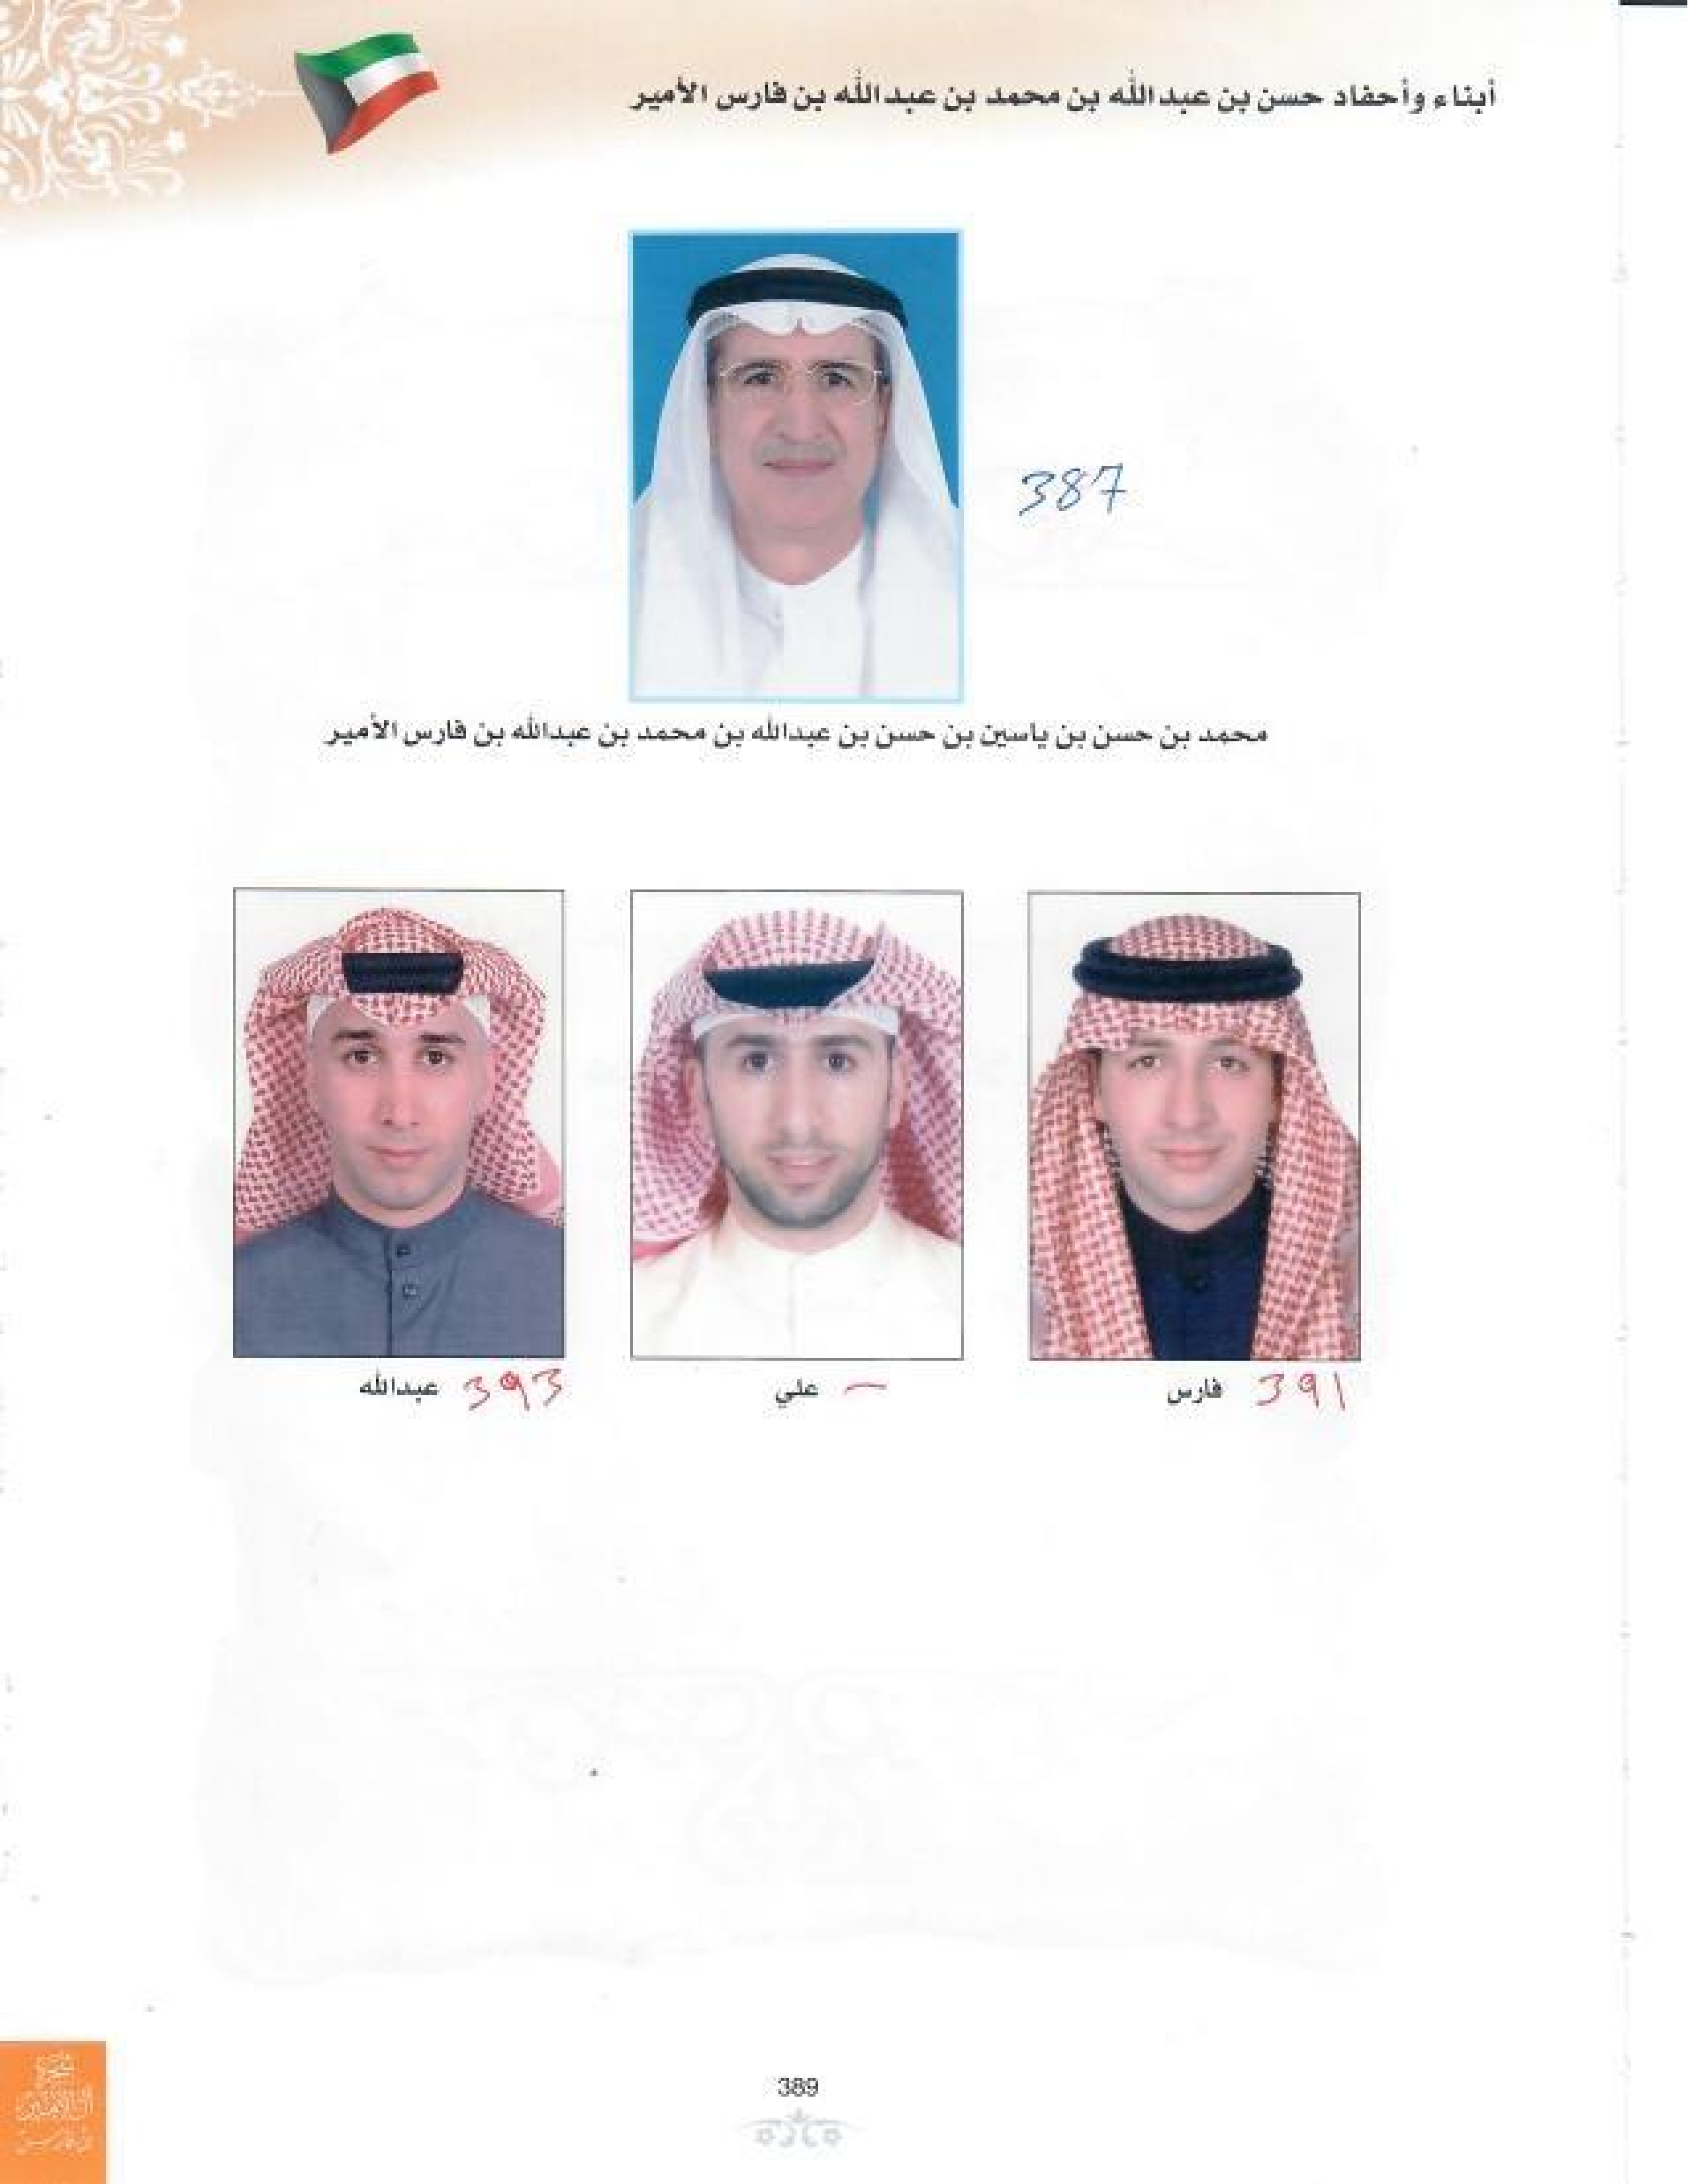 أبناء وأحفاد حسن بن عبدالله بن محمد بن عبدالله بن فارس الأمير
387
محمد بن حسن بن ياسين بن حسن بن عبدالله بن محمد بن عبدالله بن فارس الأمير
391 فارس
— علي
393 عبدالله
389
شجرة